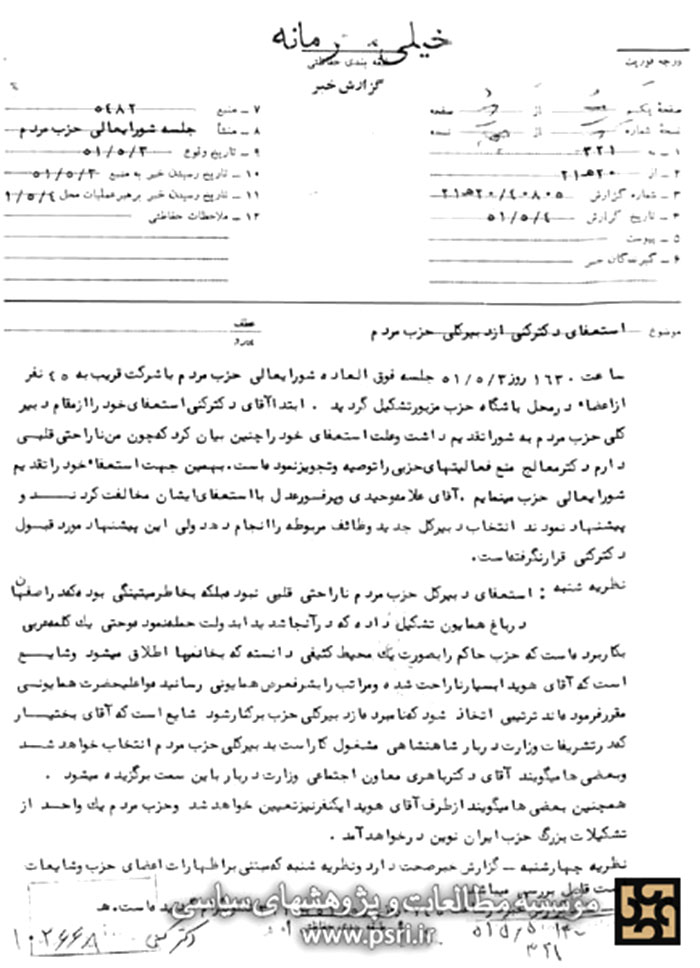 خیلی محرمانه
طبقه بندی حفاظتی
گزارش خبر
درجه فوریت
صفحهٔ یکم از صفحه
نسخهٔ شماره از نسخه
۱ ـ به ۳۲۱
۲ ـ از ۲۰هـ ۲۱
۳ ـ شماره گزارش ۲۰/۴۰۸۰۵هـ ۲۱
۴ ـ تاریخ گزارش ۵۱/۵/۴
۵ ـ پیوست
۶ ـ گیرندگان خبر
۷ ـ منبع ۵۴۸۲
۸ ـ منشأ جلسه شورایعالی حزب مردم
۹ ـ تاریخ وقوع ۵۱/۵/۳
۱۰ ـ تاریخ رسیدن خبر به منبع ۵۱/۵/۳
۱۱ ـ تاریخ رسیدن خبر برهبر عملیات محل ۱/۵/۴
۱۲ ـ ملاحظات حفاظتی
موضوع استعفای دکترکنی از دبیرکلی حزب مردم
عطف
پیرو
ساعت ۱۶۳۰ روز ۵۱/۵/۳ جلسه فوق العاده شورایعالی حزب مردم با شرکت قریب به ۴۵ نفر
از اعضاء در محل باشگاه حزب مزبور تشکیل گردید . ابتدا آقای دکترکنی استعفای خود را از مقام دبیر
کلی حزب مردم به شورا تقدیم داشت و علت استعفای خود را چنین بیان کرد که چون من ناراحتی قلبی
دارم دکتر معالج منع فعالیتهای حزبی را توصیه و تجویز نموده است. بهمین جهت استعفاء خود را تقدیم
شورایعالی حزب مینمایم . آقای علامه وحیدی و پرفسور عدل با استعفای ایشان مخالفت کردند و
پیشنهاد نمودند انتخاب دبیرکل جدید وظائف مربوطه را انجام دهد ولی این پیشنهاد مورد قبول
دکترکنی قرار نگرفته است.
نظریه شنبه : استعفای دبیرکل حزب مردم ناراحتی قلبی نبوده بلکه بخاطر میتینگی بوده که در اصفهان
در باغ همایون تشکیل داده که در آنجا شدیداً بدولت حمله نموده و حتی یک کلمه عربی
بکار برده است که حزب حاکم را بصورت یک محیط کثیفی دانسته که بخانمها اطلاق میشود و شایع
است که آقای هویدا بسیار ناراحت شده و مراتب را بشرفعرض همایونی رسانیده و اعلیحضرت همایونی
مقرر فرموده اند ترتیبی اتخاذ شود که نامبرده از دبیرکلی حزب برکنار شود شایع است که آقای بختیار
که در تشریفات وزارت دربار شاهنشاهی مشغول کار است بدبیرکلی حزب مردم انتخاب خواهد شد
و بعضی ها میگویند آقای دکتر باهری معاون اجتماعی وزارت دربار باین سمت برگزیده میشود .
همچنین بعضی ها میگویند از طرف آقای هویدا یکنفر نیز تعیین خواهد شد و حزب مردم یک واحد از
تشکیلات بزرگ حزب ایران نوین در خواهد آمد .
نظریه چهارشنبه ـ گزارش خبر صحت دارد و نظریه شنبه که مبتنی بر اظهارات اعضای حزب و شایعات
است قابل بررسی میباشد
مؤسسه مطالعات و پژوهشهای سیاسی
www.psri.ir
دکتر کنی
۱۰۲۶۶۸
۳۲۱